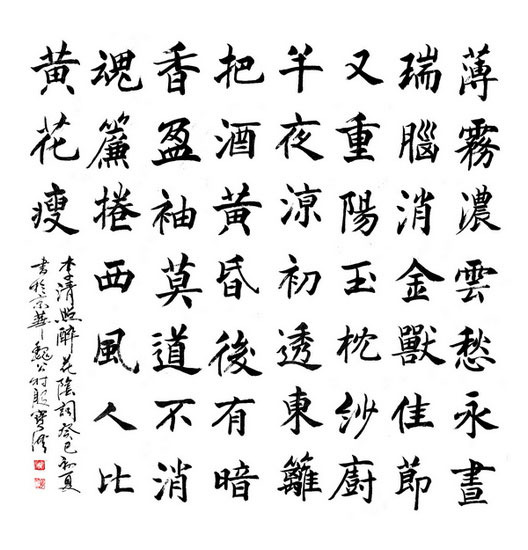 薄霧濃雲愁永晝
瑞腦消金獸佳節
又重陽玉枕紗廚
半夜涼初透東籬
把酒黃昏後有暗
香盈袖莫道不消
魂簾捲西風人比
黃花瘦
李清照醉花陰詞癸巳初夏
書於京華魏公村